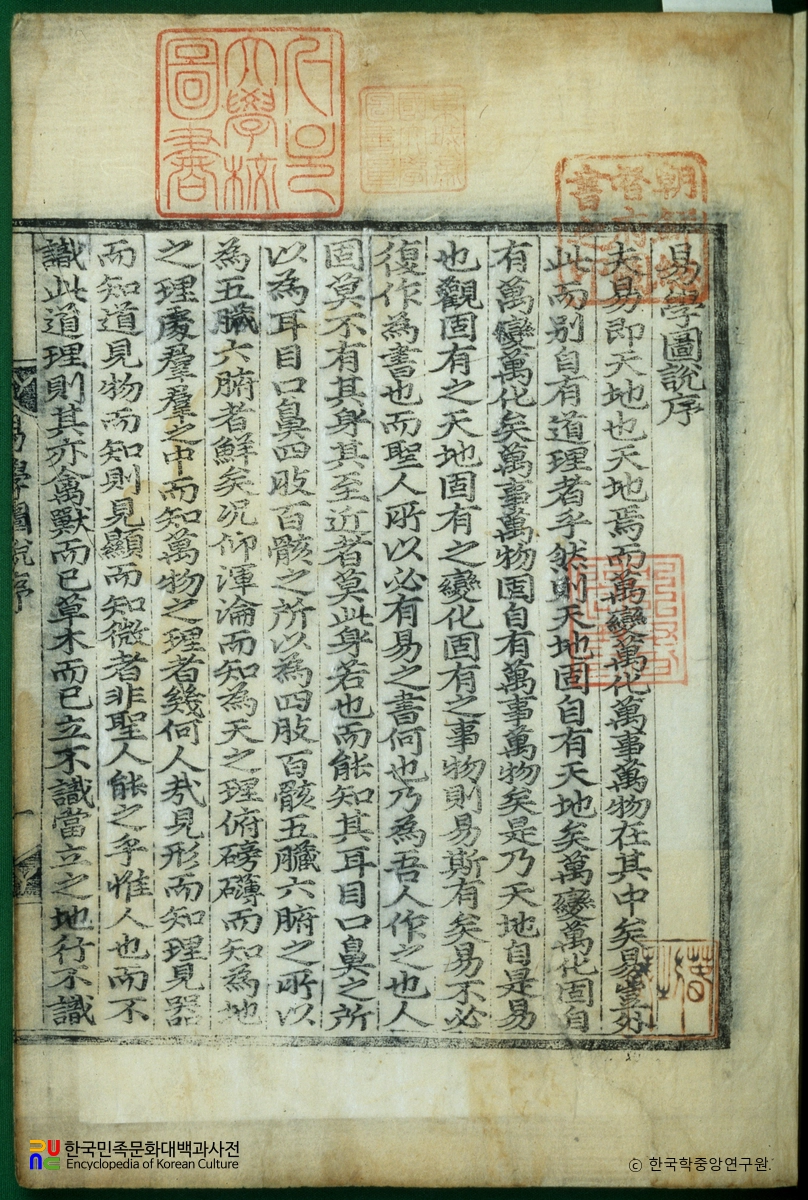 易学圖說序
夫易即天地也天地焉而萬變萬化萬事萬物在其中矣易豈外
此而别自有道理者乎然則天地固自有天地矣萬變萬化固自
有萬變萬化矣萬事萬物固自有萬事萬物矣是乃天地自是易
也觀固有之天地固有之變化固有之事物則易斯有矣易不必
復作為書也而聖人所以必有易之書何也乃為吾人作之也人
固莫不有其身其至近者莫此身若也而能知其耳目口鼻之所
以為耳目口鼻四肢百骸之所以為四肢百骸五臟六腑之所以
為五臟六腑者鮮矣况仰渾淪而知為天之理俯磅礴而知為地
之理處羣羣之中而知萬物之理者幾何人哉見形而知理見器
而知道見物而知則見顯而知微者非聖人能之乎惟人也而不
識此道理則其亦禽獸而已草木而已立不識當立之地行不識
易學圖說序
圖書
大學校
한국민족문화대백과사전
Encyclopedia of Korean Culture
ⓒ 한국학중앙연구원.